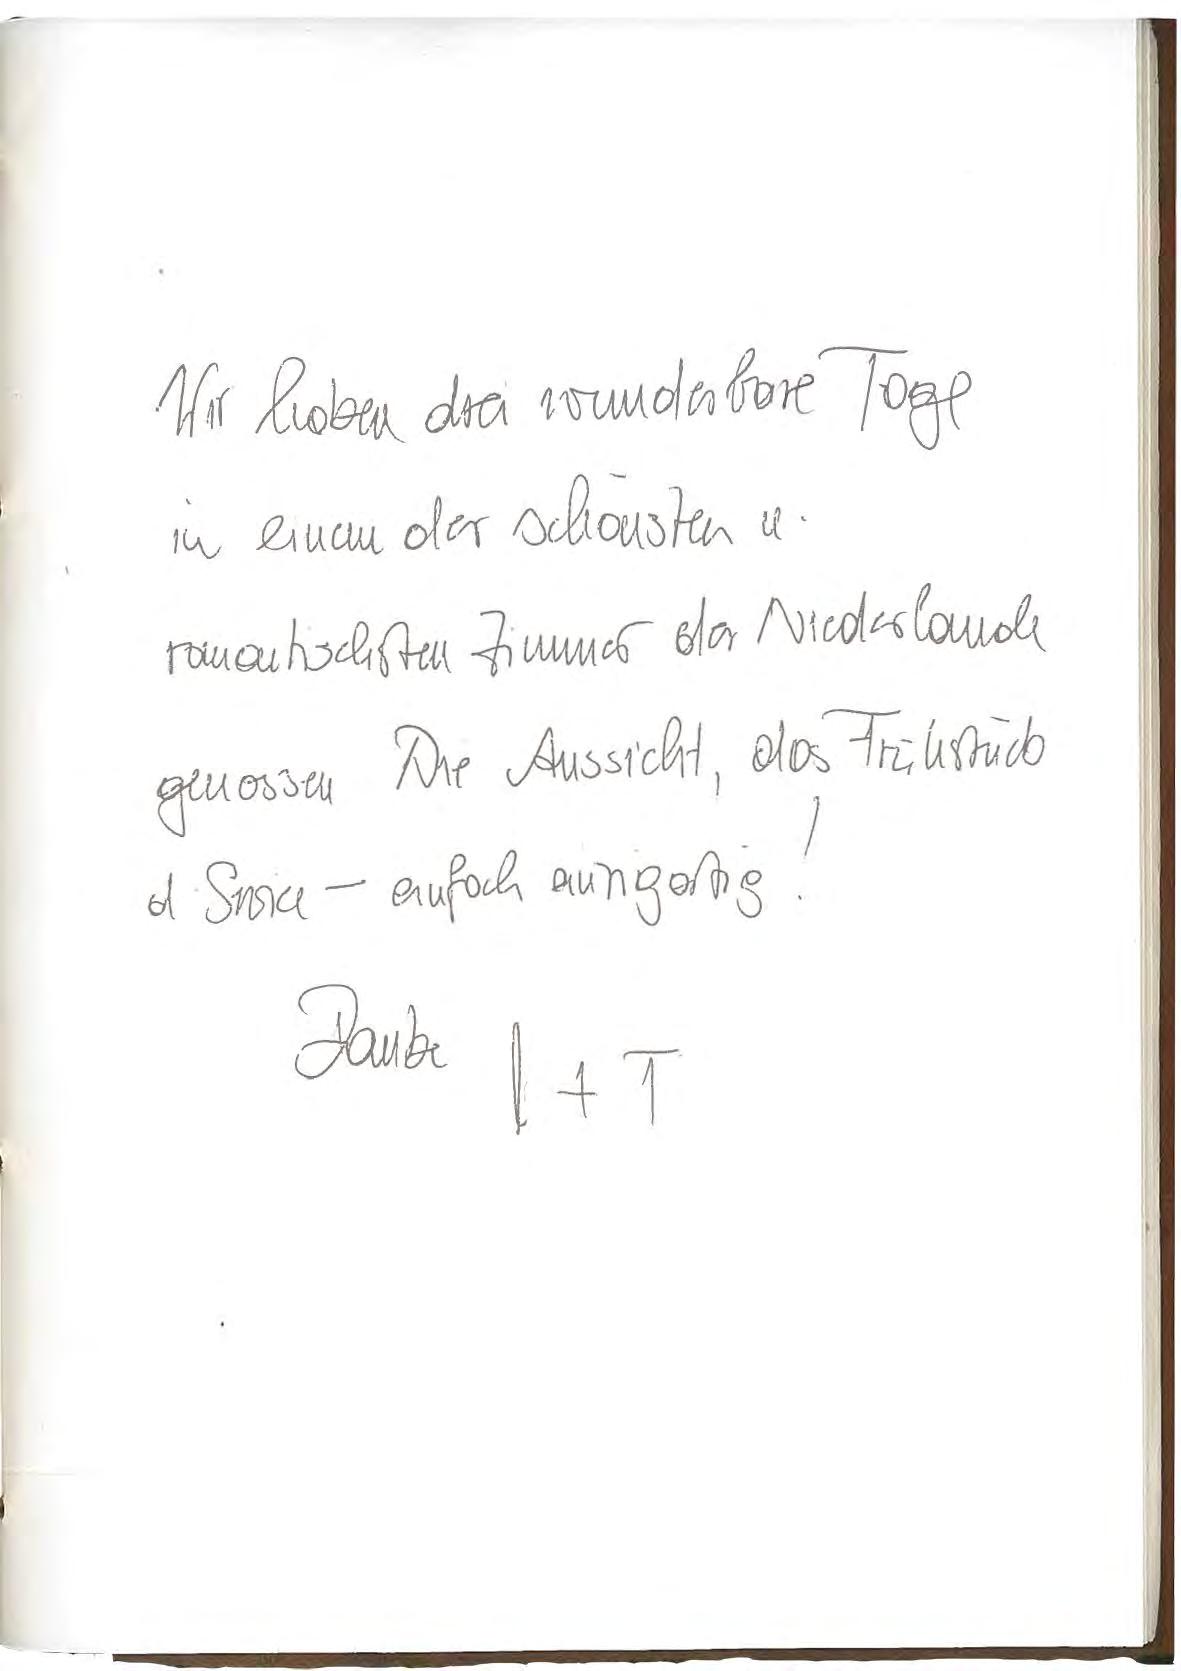 Wir haben drei wunderbare Tage
in einem der schönsten u.
romantischsten Zimmer der Niederlande
genossen Die Aussicht, das Frühstück
d Service – einfach einzigartig!
Danke I + T